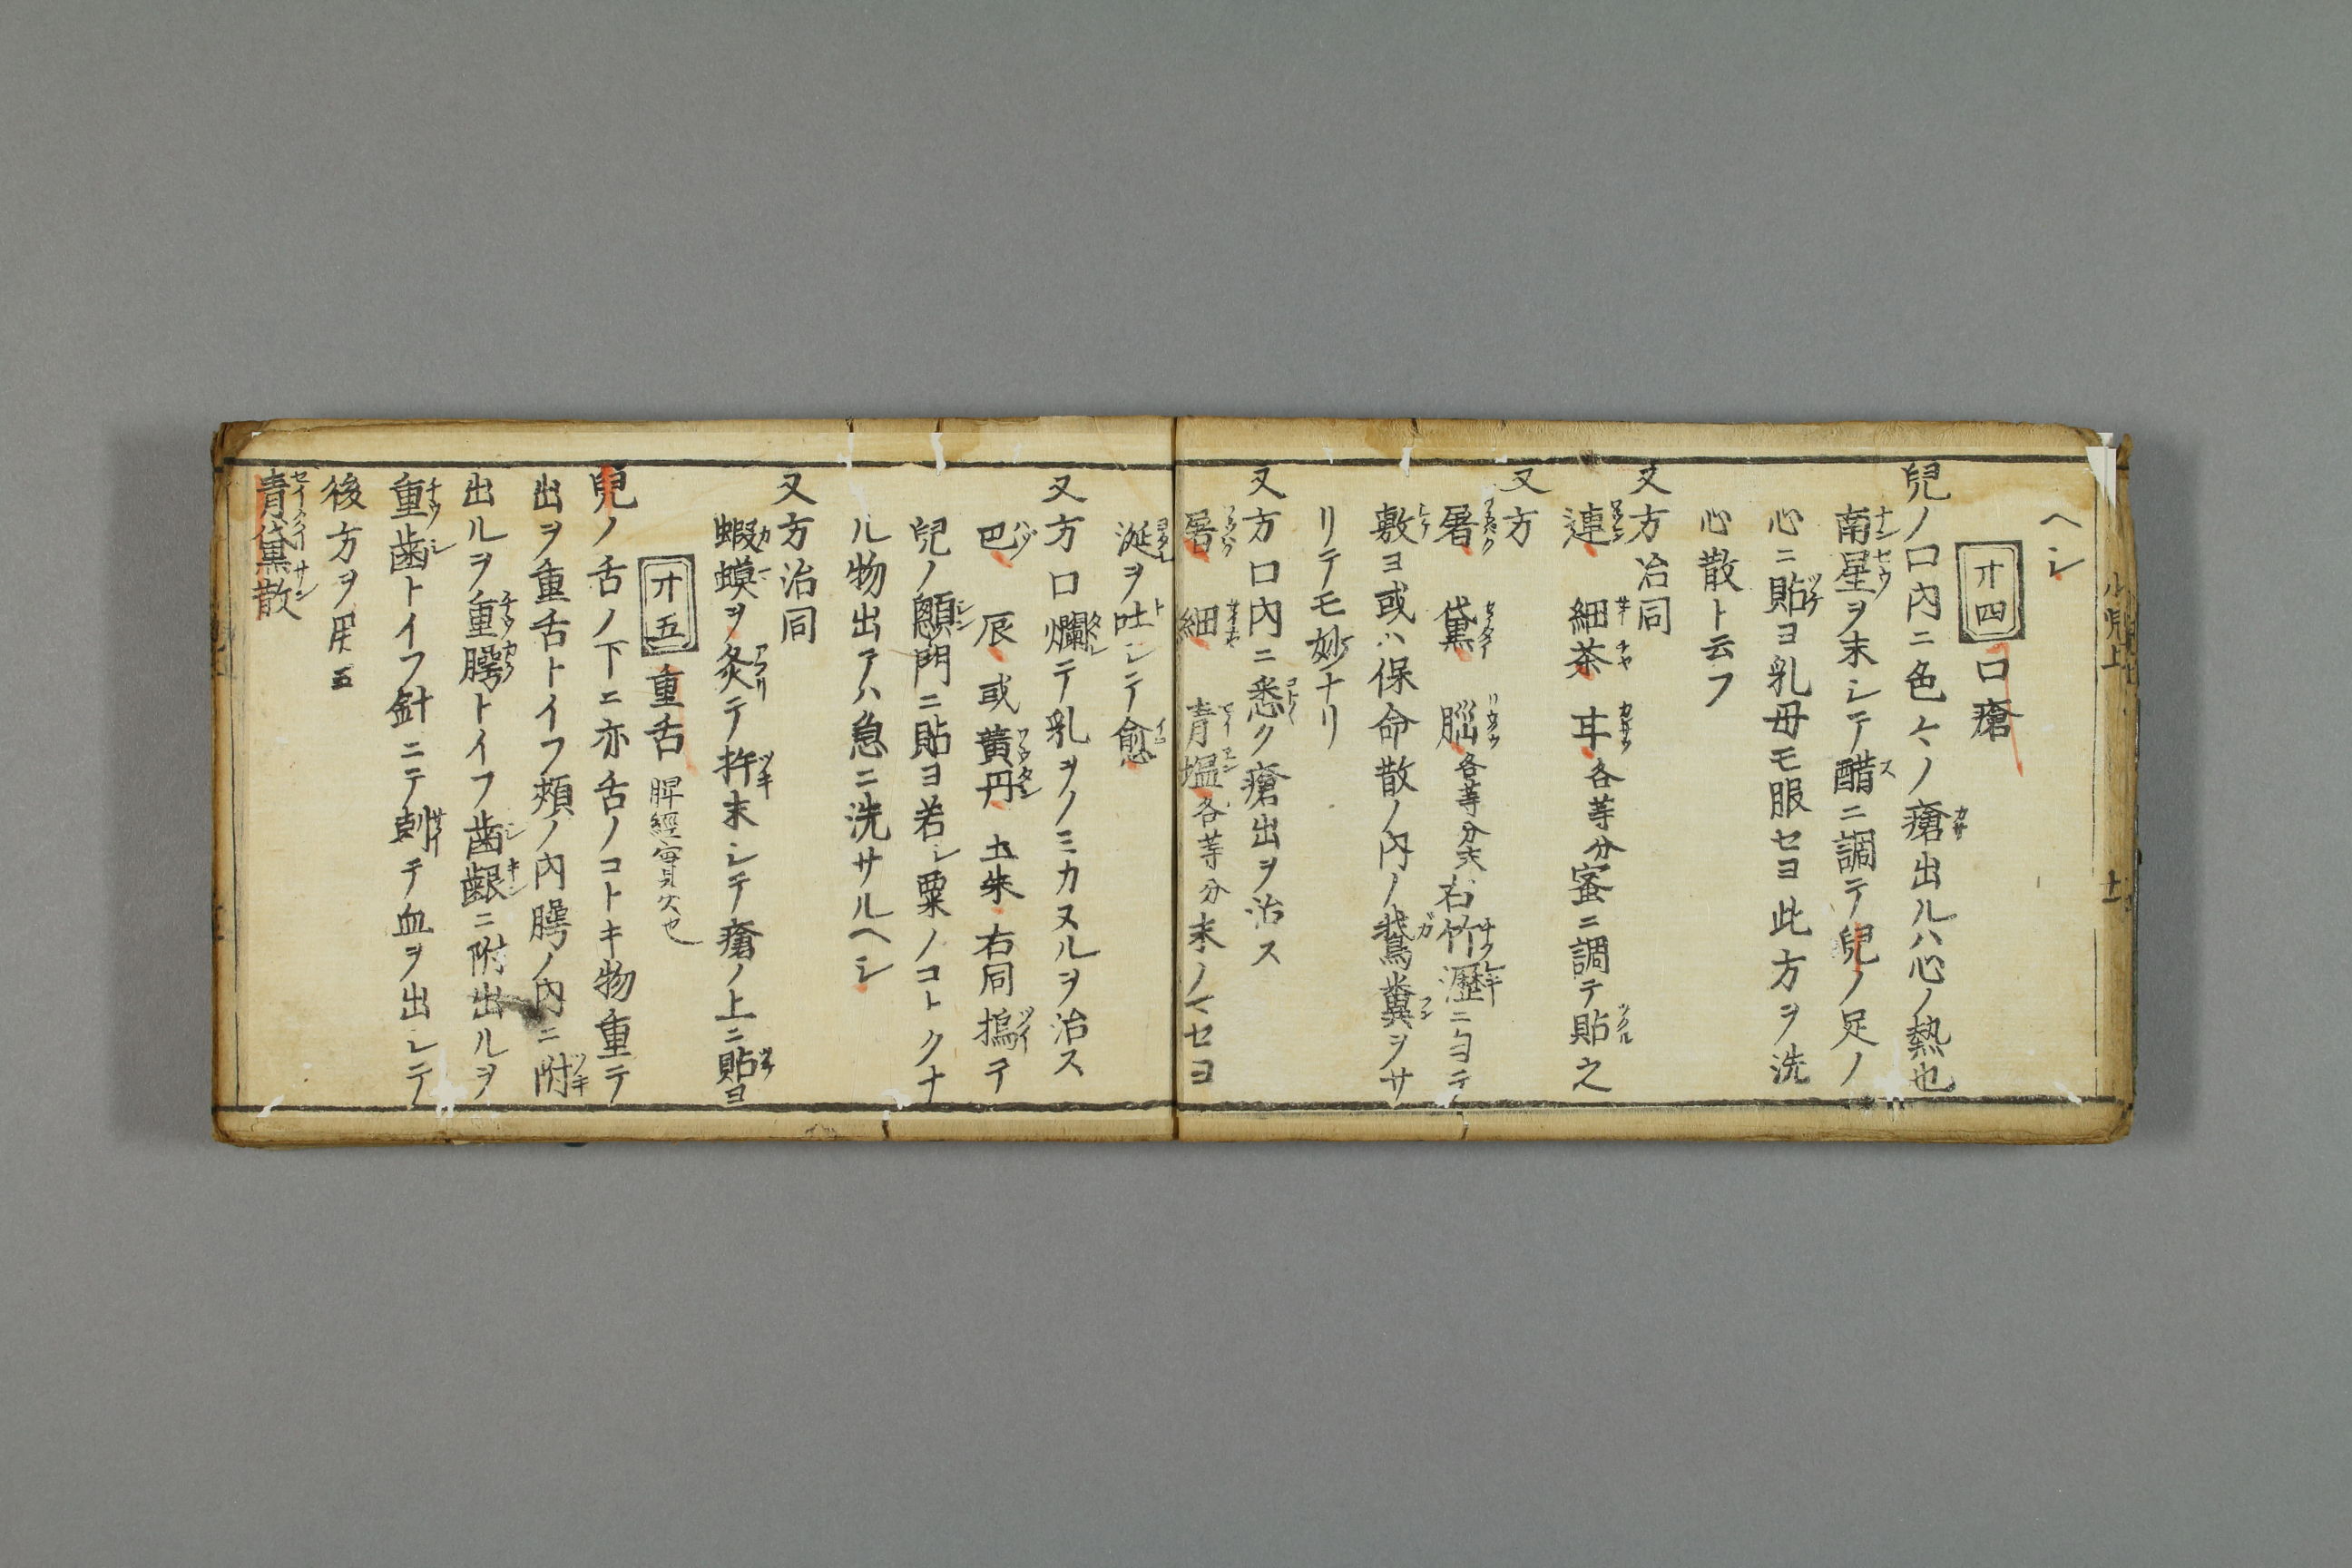 ヘシ
廾四 口瘡
兒ノ口内ニ色々ノ瘡出ルハ心ノ熱也
南星ヲ末シテ醋ニ調テ兒ノ足ノ
心ニ貼ヨ乳母モ服セヨ此方ヲ洗
心散ト云フ
又方治同
連 細茶 各等分蜜ニ調テ貼之
又方
黛 各等分 右竹瀝ニ
敷ヨ或ハ保命散ノ内ノ鵞糞ヲサ
リテモ妙ナリ
又方口内ニ悉ク瘡出ヲ治ス
細 青塩各等分末ノマセヨ
涎ヲ吐シテ愈
又方口爛テ乳ヲノミカヌルヲ治ス
巴 辰 或黄丹 土朱 右同搗テ
兒ノ顖門ニ貼ヨ若シ粟ノコトクナ
ル物出アハ急ニ洗サルヘシ
又方治同
蝦蟆ヲ灸テ杵末シテ瘡ノ上ニ貼ヨ
廾五 重舌 脾經實火也
兒ノ舌ノ下ニ亦舌ノコトキ物重テ
出ヲ重舌トイフ頬ノ内腭ノ内ニ附
出ルヲ重腭トイフ歯齦ニ附出ルヲ
重歯トイフ針ニテ刺テ血ヲ出シテ
後方ヲ用五
青黛散